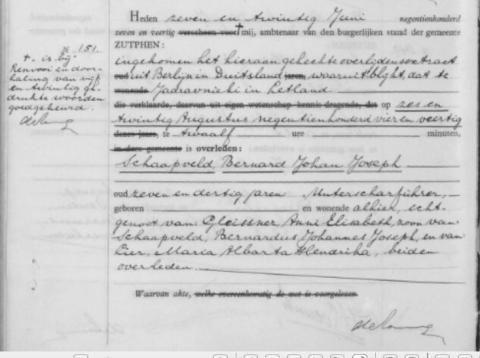 Heden zeven en twintig Juni negentienhonderd
zeven en veertig verscheen voor mij, ambtenaar van den burgerlijken stand der gemeente
ZUTPHEN:
ingekomen het hieraan gehechte overlidensextract
oud uit Berlijn in Duitsland jaren, waaruit blijkt, dat te
wonende Jadravnieki in Letland
die verklaarde, daarvan uit eigen wetenschap kennis dragende, dat op zes en
twintig Augustus negentienhonderd vier en veertig
dezes jaars, te twaalf ure minuten,
in deze gemeente is overleden:
Schaapveld, Bernard Johan Joseph
oud zeven en dertig jaren Unterscharführer,
geboren en wonende alhier, echt-
genoot van Gleissner, Anni Elisabeth, zoon van
Schaapveld, Bernardus Johannes Joseph, en van
Eier, Maria Alberta Hendrika, beiden
overleden.
Waarvan akte, welke overeenkomstig de wet is voorgelezen.
No. 151.
+ is bij
Renvooi en door-
haling van vijf
en twintig ge-
drukte woorden
goedgekeurd.